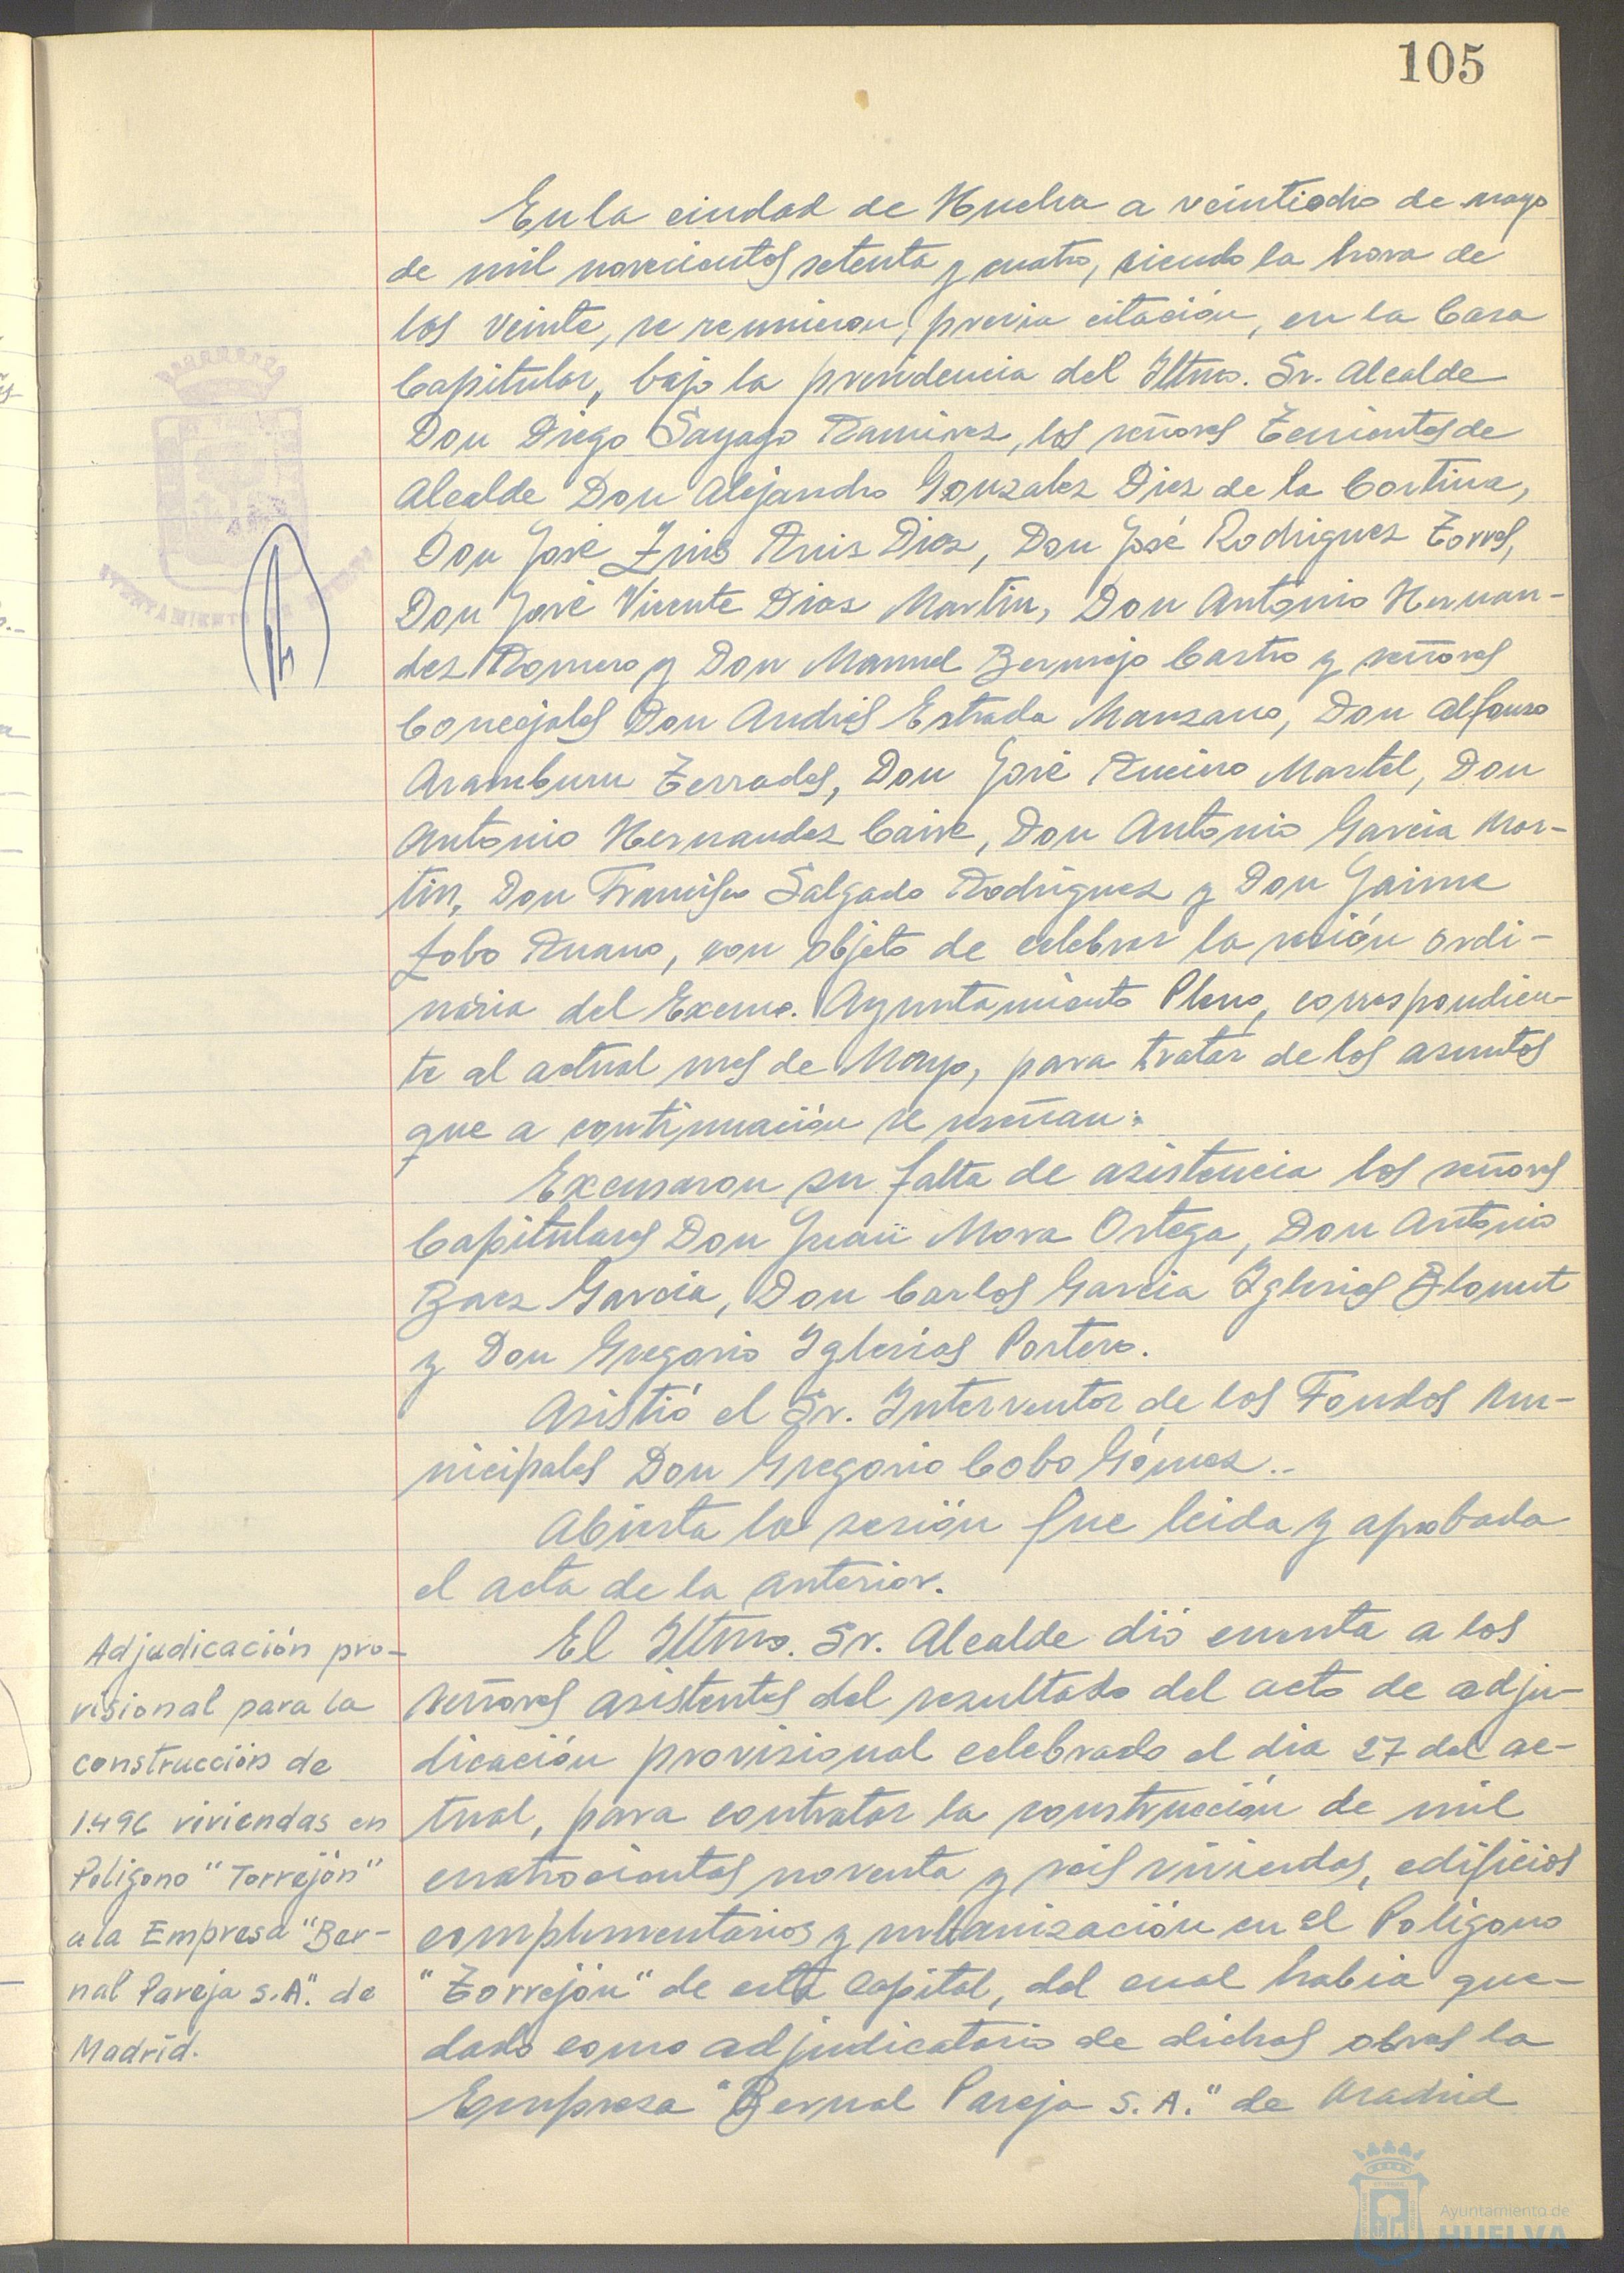 105
En la ciudad de Huelva a veintiocho de mayo
de mil novecientos setenta y cuatro, siendo la hora de
las veinte, se reunieron, previa citación, en la Casa
Capitular, bajo la presidencia del Iltmo. Sr. Alcalde
Don Diego Sayago Ramirez, los señores Tenientes de
Alcalde Don Alejandro Gonzalez Diez de la Cortina,
Don José Luis Ruiz Diaz, Don José Rodriguez Torres,
Don José Vicente Dias Martin, Don Antonio Hernan-
dez Romero y Don Manuel Bermejo Castro y señores
Concejales Don Andrés Estrada Manzano, Don Alfonso
Aramburu Terrades, Don José Rucino Martel, Don
Antonio Hernandez Caire, Don Antonio Garcia Mar-
tin, Don Francisco Salgado Rodriguez y Don Jaime
Lobo Ruano, con objeto de celebrar la sesión ordi-
naria del Excmo. Ayuntamiento Pleno, correspondien-
te al actual mes de Mayo, para tratar de los asuntos
que a continuación se reseñan:
Excusaron su falta de asistencia los señores
Capitulares Don Juan Mora Ortega, Don Antonio
Baez Garcia, Don Carlos Garcia Iglesias
y Don Gregorio Iglesias Portero.
Asistió el Sr. Interventor de los Fondos Mu-
nicipales Don Gregorio Cobo Gómez..
Abierta la sesión fue leida y aprobada
el acta de la anterior.
Adjudicación pro-
visional para la
construcción de
1.496 viviendas en
Poligono "Torrejón"
a la Empresa "Ber-
nal Pareja S.A". de
Madrid.
El Iltmo. Sr. Alcalde dió cuenta a los
señores asistentes del resultado del acto de adju-
dicación provisional celebrado el dia 27 del ac-
tual, para contratar la construcción de mil
cuatrocientas noventa y seis viviendas, edificios
complementarios y urbanización en el Poligono
"Torrejón" de esta Capital, del cual habia que-
dado como adjudicatario de dichas obras la
Empresa "Bernal Pareja S.A." de Madrid
Ayuntamiento de
HUELVA